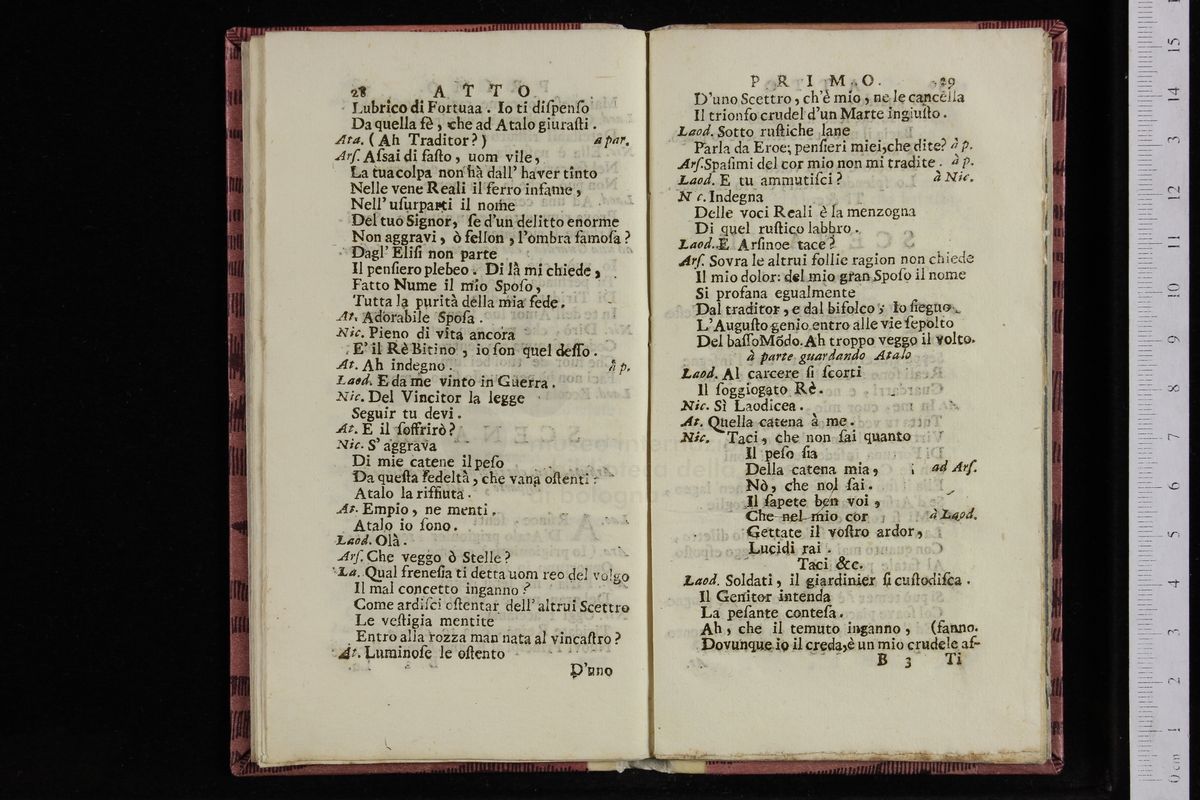 28 ATTO
Lubrico di Fortuaa. Io ti diſpenſo
Da quella fè, che ad Atalo giuraſti.
Ata. (Ah Traditor?) a par.
Arſ. Aſsai di faſto, uom vile,
La tua colpa non hà dall' haver tinto
Nelle vene Reali il ferro infame,
Nell' uſurparti il nome
Del tuo Signor, ſe d'un delitto enorme
Non aggravi, ò fellon, l'ombra famoſa?
Dagl' Eliſi non parte
Il penſiero plebeo. Di là mi chiede,
Fatto Nume il mio Spoſo,
Tutta la purità della mia fede.
At. Adorabile Spoſa.
Nic. Pieno di vita ancora
E' il Rè Bitino, io ſon quel deſſo.
At. Ah indegno. à p.
Laod. E da me vinto in Guerra.
Nic. Del Vincitor la legge
Seguir tu devi.
At. E il ſoffrirò?
Nic. S' aggrava
Di mie catene il peſo
Da queſta fedeltà, che vana oſtenti:
Atalo la riffiuta.
At. Empio, ne menti.
Atalo io ſono.
Laod. Olà.
Arſ. Che veggo ò Stelle?
La. Qual freneſia ti detta uom reo del volgo
Il mal concetto inganno?
Come ardiſci oſtentar dell' altrui Scettro
Le veſtigia mentite
Entro alla rozza man nata al vincaſtro?
At. Luminoſe le oſtento
D'uno
PRIMO. 29
D'uno Scettro, ch'è mio, ne le cancella
Il trionfo crudel d'un Marte ingiuſto.
Laod. Sotto ruſtiche lane
Parla da Eroe; penſieri miei, che dite? à p.
Arſ. Spaſimi del cor mio non mi tradite. à p.
Laod. E tu ammutiſci? à Nic.
N c. Indegna
Delle voci Reali è la menzogna
Di quel ruſtico labbro.
Laod. E Arſinoe tace?
Arſ. Sovra le altrui follie ragion non chiede
Il mio dolor: del mio gran Spoſo il nome
Si profana egualmente
Dal traditor, e dal bifolco; Io ſiegno
L'Auguſto genio entro alle vie ſepolto
Del baſſo Mõdo. Ah troppo veggo il volto.
à parte guardando Atalo
Laod. Al carcere ſi ſcorti
Il ſoggiogato Rè.
Nic. Sì Laodicea.
At. Quella catena à me.
Nic. Taci, che non ſai quanto
Il peſo ſia
Della catena mia, ad Arſ.
Nò, che nol ſai.
Il ſapete ben voi,
Che nel mio cor à Laod.
Gettate il voſtro ardor,
Lucidi rai.
Taci &c.
Laod. Soldati, il giardinier ſi cuſtodiſca.
Il Genitor intenda
La peſante conteſa.
Ah, che il temuto inganno, (fanno.
Dovunque io il creda, è un mio crudele aſ-
B 3 Ti